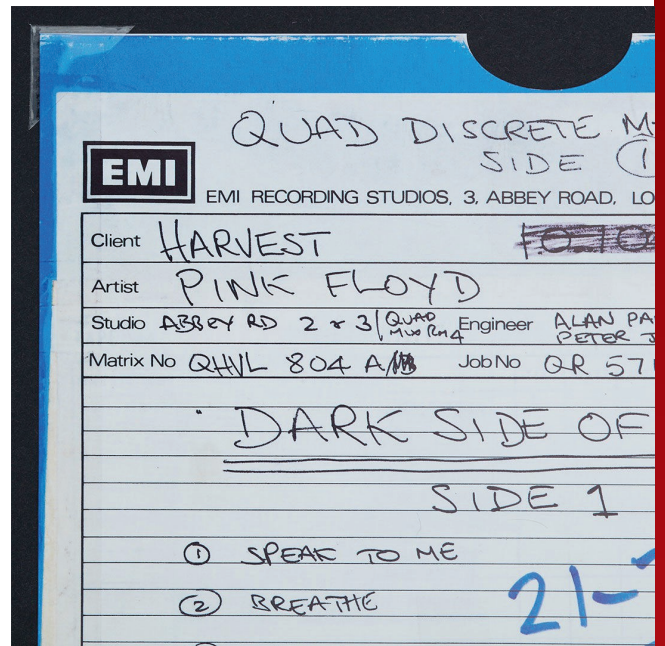 QUAD DISCRETE
SIDE 1
EMI
EMI RECORDING STUDIOS, 3, ABBEY ROAD, LO
Client HARVEST
Artist PINK FLOYD
Studio ABBEY RD 2 & 3 QUAD Engineer ALAN PA
PETER J
Matrix No QHVL 804 A Job No QR 571
DARK SIDE OF
SIDE 1
① SPEAK TO ME
② BREATHE
21-